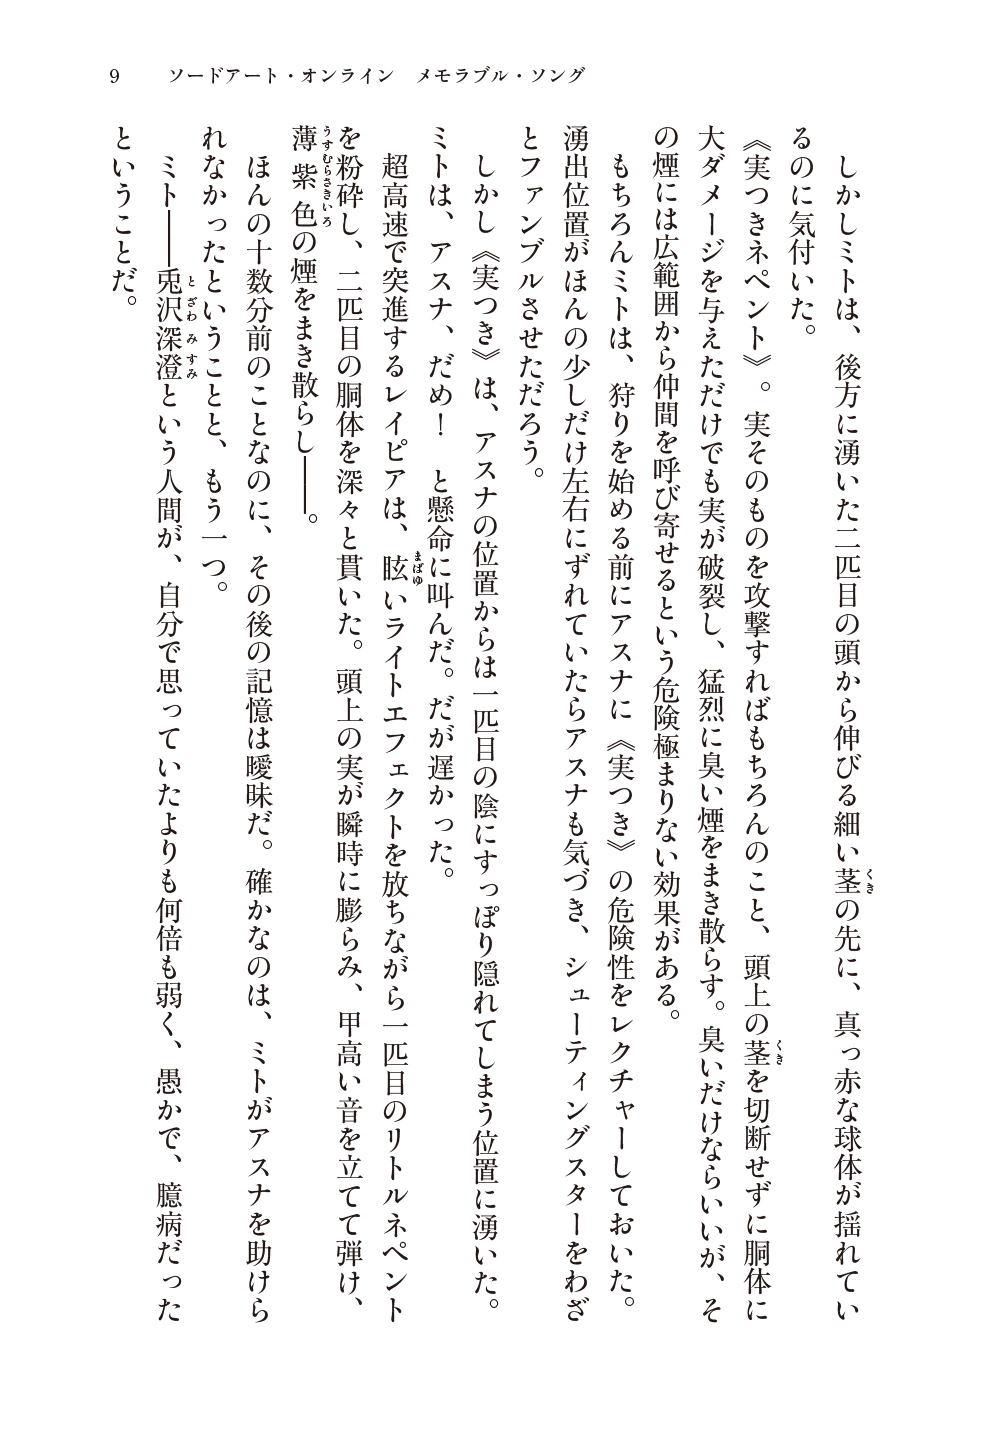 9　ソードアート・オンライン　メモラブル・ソング
　しかしミトは、後方に湧いた二匹目の頭から伸びる細い茎の先に、真っ赤な球体が揺れてい
るのに気付いた。
《実つきネペント》。実そのものを攻撃すればもちろんのこと、頭上の茎を切断せずに胴体に
大ダメージを与えただけでも実が破裂し、猛烈に臭い煙をまき散らす。臭いだけならいいが、そ
の煙には広範囲から仲間を呼び寄せるという危険極まりない効果がある。
　もちろんミトは、狩りを始める前にアスナに《実つき》の危険性をレクチャーしておいた。
湧出位置がほんの少しだけ左右にずれていたらアスナも気づき、シューティングスターをわざ
とファンブルさせただろう。
　しかし《実つき》は、アスナの位置からは一匹目の陰にすっぽり隠れてしまう位置に湧いた。
ミトは、アスナ、だめ！　と懸命に叫んだ。だが遅かった。
　超高速で突進するレイピアは、眩いライトエフェクトを放ちながら一匹目のリトルネペント
を粉砕し、二匹目の胴体を深々と貫いた。頭上の実が瞬時に膨らみ、甲高い音を立てて弾け、
薄紫色の煙をまき散らし――。
　ほんの十数分前のことなのに、その後の記憶は曖昧だ。確かなのは、ミトがアスナを助けら
れなかったということと、もう一つ。
　ミト――兎沢深澄という人間が、自分で思っていたよりも何倍も弱く、愚かで、臆病だった
ということだ。